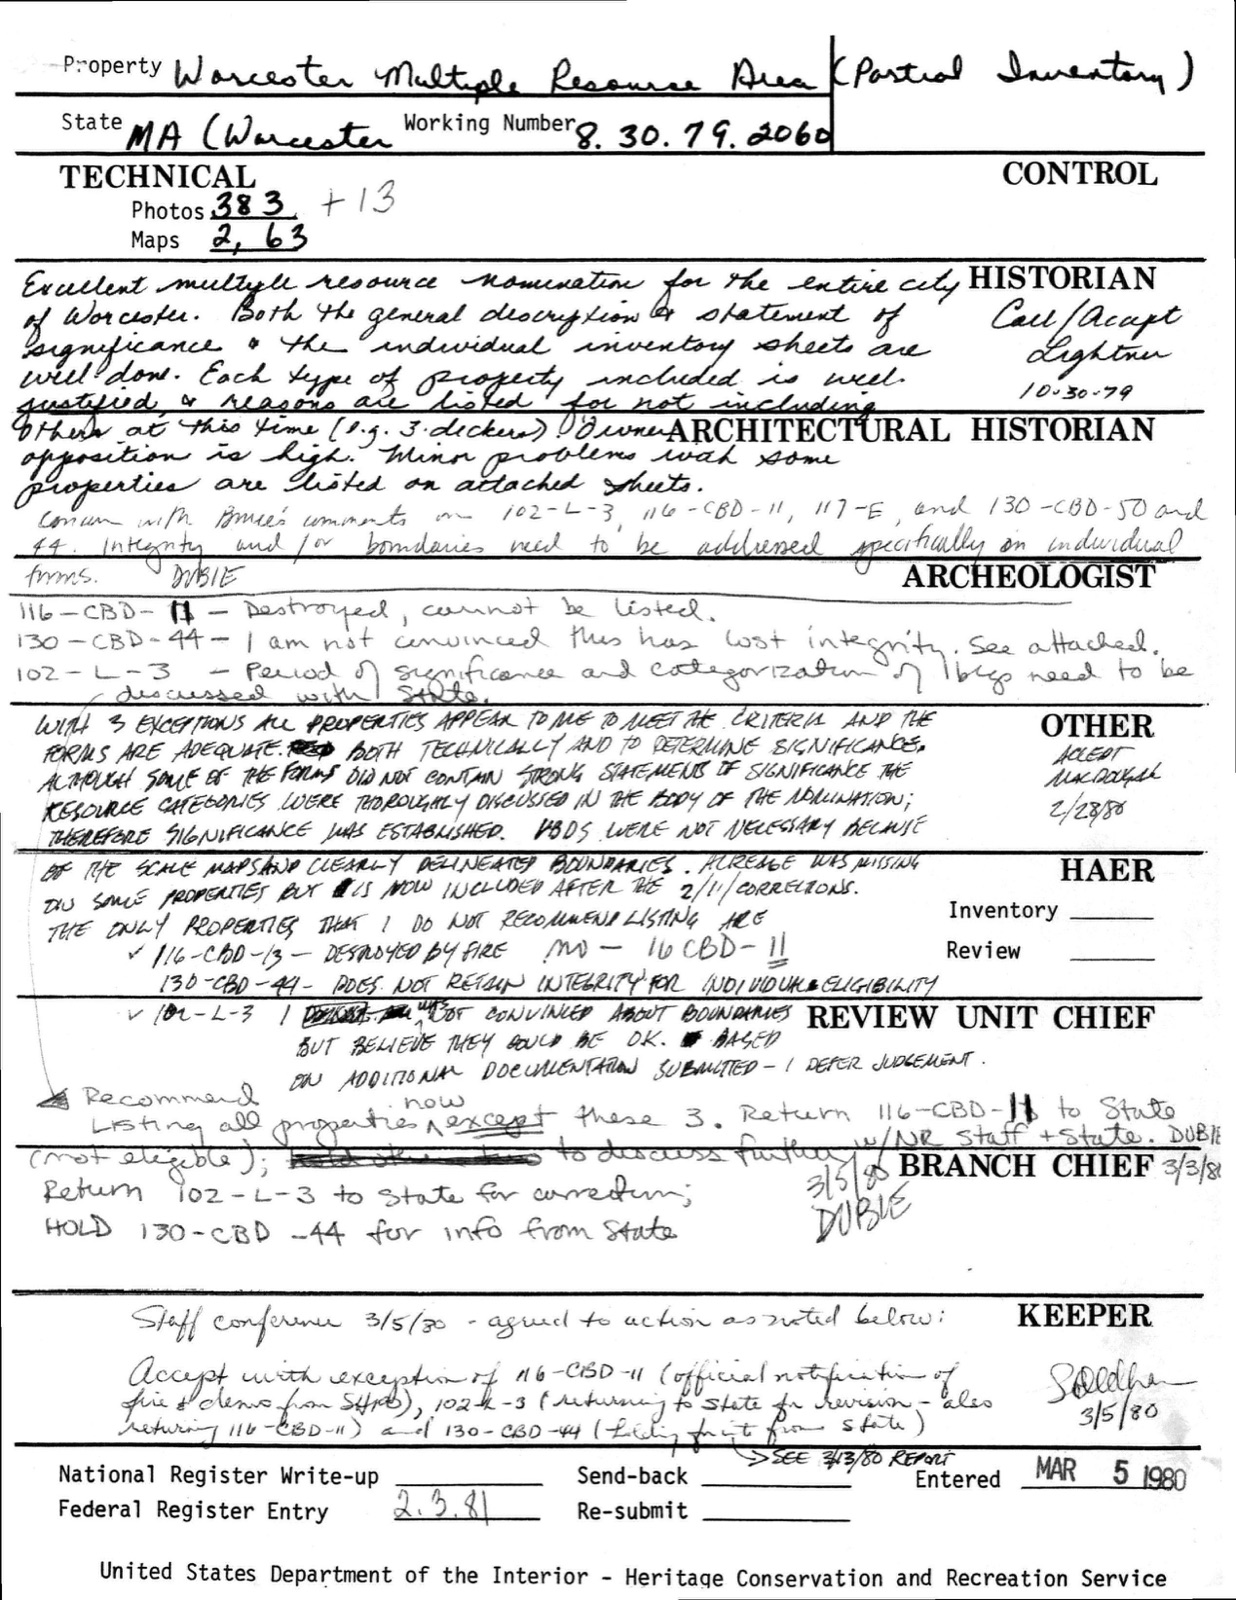 Property Worcester Multiple Resource Area (Partial Inventory)
State MA (Worcester Working Number 8.30.79.2060
TECHNICAL CONTROL
Photos 383 + 13
Maps 2, 63
Excellent multiple resource nomination for the entire city HISTORIAN
of Worcester. Both the general description & statement of Call/Accept
significance & the individual inventory sheets are Lightner
well done. Each type of property included is well 10-30-79
justified, & reasons are listed for not including
others at this time (e.g. 3-deckers). Owner ARCHITECTURAL HISTORIAN
opposition is high. Minor problems with some
properties are listed on attached sheets.
Concur with Bruce's comments on 102-L-3, 116-CBD-11, 117-E, and 130-CBD-50 and
44. Integrity and/or boundaries need to be addressed specifically on individual
forms. DUBIE ARCHEOLOGIST
116-CBD-11 - Destroyed, cannot be listed.
130-CBD-44 - I am not convinced this has lost integrity. See attached.
102-L-3 - Period of significance and categorization of bldgs need to be
discussed with State.
WITH 3 EXCEPTIONS ALL PROPERTIES APPEAR TO ME TO MEET THE CRITERIA AND THE OTHER
FORMS ARE ADEQUATE BOTH TECHNICALLY AND TO DETERMINE SIGNIFICANCE. ACCEPT
ALTHOUGH SOME OF THE FORMS DID NOT CONTAIN STRONG STATEMENTS OF SIGNIFICANCE THE MACDOUGAL
RESOURCE CATEGORIES WERE THOROUGHLY DISCUSSED IN THE BODY OF THE NOMINATION; 2/28/80
THEREFORE SIGNIFICANCE WAS ESTABLISHED. VBDS WERE NOT NECESSARY BECAUSE
OF THE SCALE MAPS AND CLEARLY DELINEATED BOUNDARIES. ACREAGE WAS MISSING HAER
ON SOME PROPERTIES BUT IS NOW INCLUDED AFTER THE 2/11/CORRECTIONS.
THE ONLY PROPERTIES THAT I DO NOT RECOMMEND LISTING ARE Inventory
✓ 116-CBD-13 - DESTROYED BY FIRE NO - 116 CBD-11 Review
130-CBD-44 - DOES NOT RETAIN INTEGRITY FOR INDIVIDUAL ELIGIBILITY
✓ 102-L-3 I was NOT CONVINCED ABOUT BOUNDARIES REVIEW UNIT CHIEF
BUT BELIEVE THEY COULD BE OK. BASED
ON ADDITIONAL DOCUMENTATION SUBMITTED - I DEFER JUDGEMENT.
Recommend
Listing all properties now except these 3. Return 116-CBD-11 to State
(not eligible); to discuss further w/NR Staff + State. DUBIE
BRANCH CHIEF 3/3/80
Return 102-L-3 to State for correction; 3/5/80
HOLD 130-CBD-44 for info from State DUBIE
Staff conference 3/5/80 - agreed to action as noted below: KEEPER
Accept with exception of 116-CBD-11 (official notification of
fire & demo from SHPO), 102-L-3 (returning to State for revision - also 3/5/80
returning 116-CBD-11) and 130-CBD-44 (holding for it from State)
SEE 3/13/80 REPORT
National Register Write-up Send-back Entered MAR 5 1980
Federal Register Entry 2.3.81 Re-submit
United States Department of the Interior - Heritage Conservation and Recreation Service